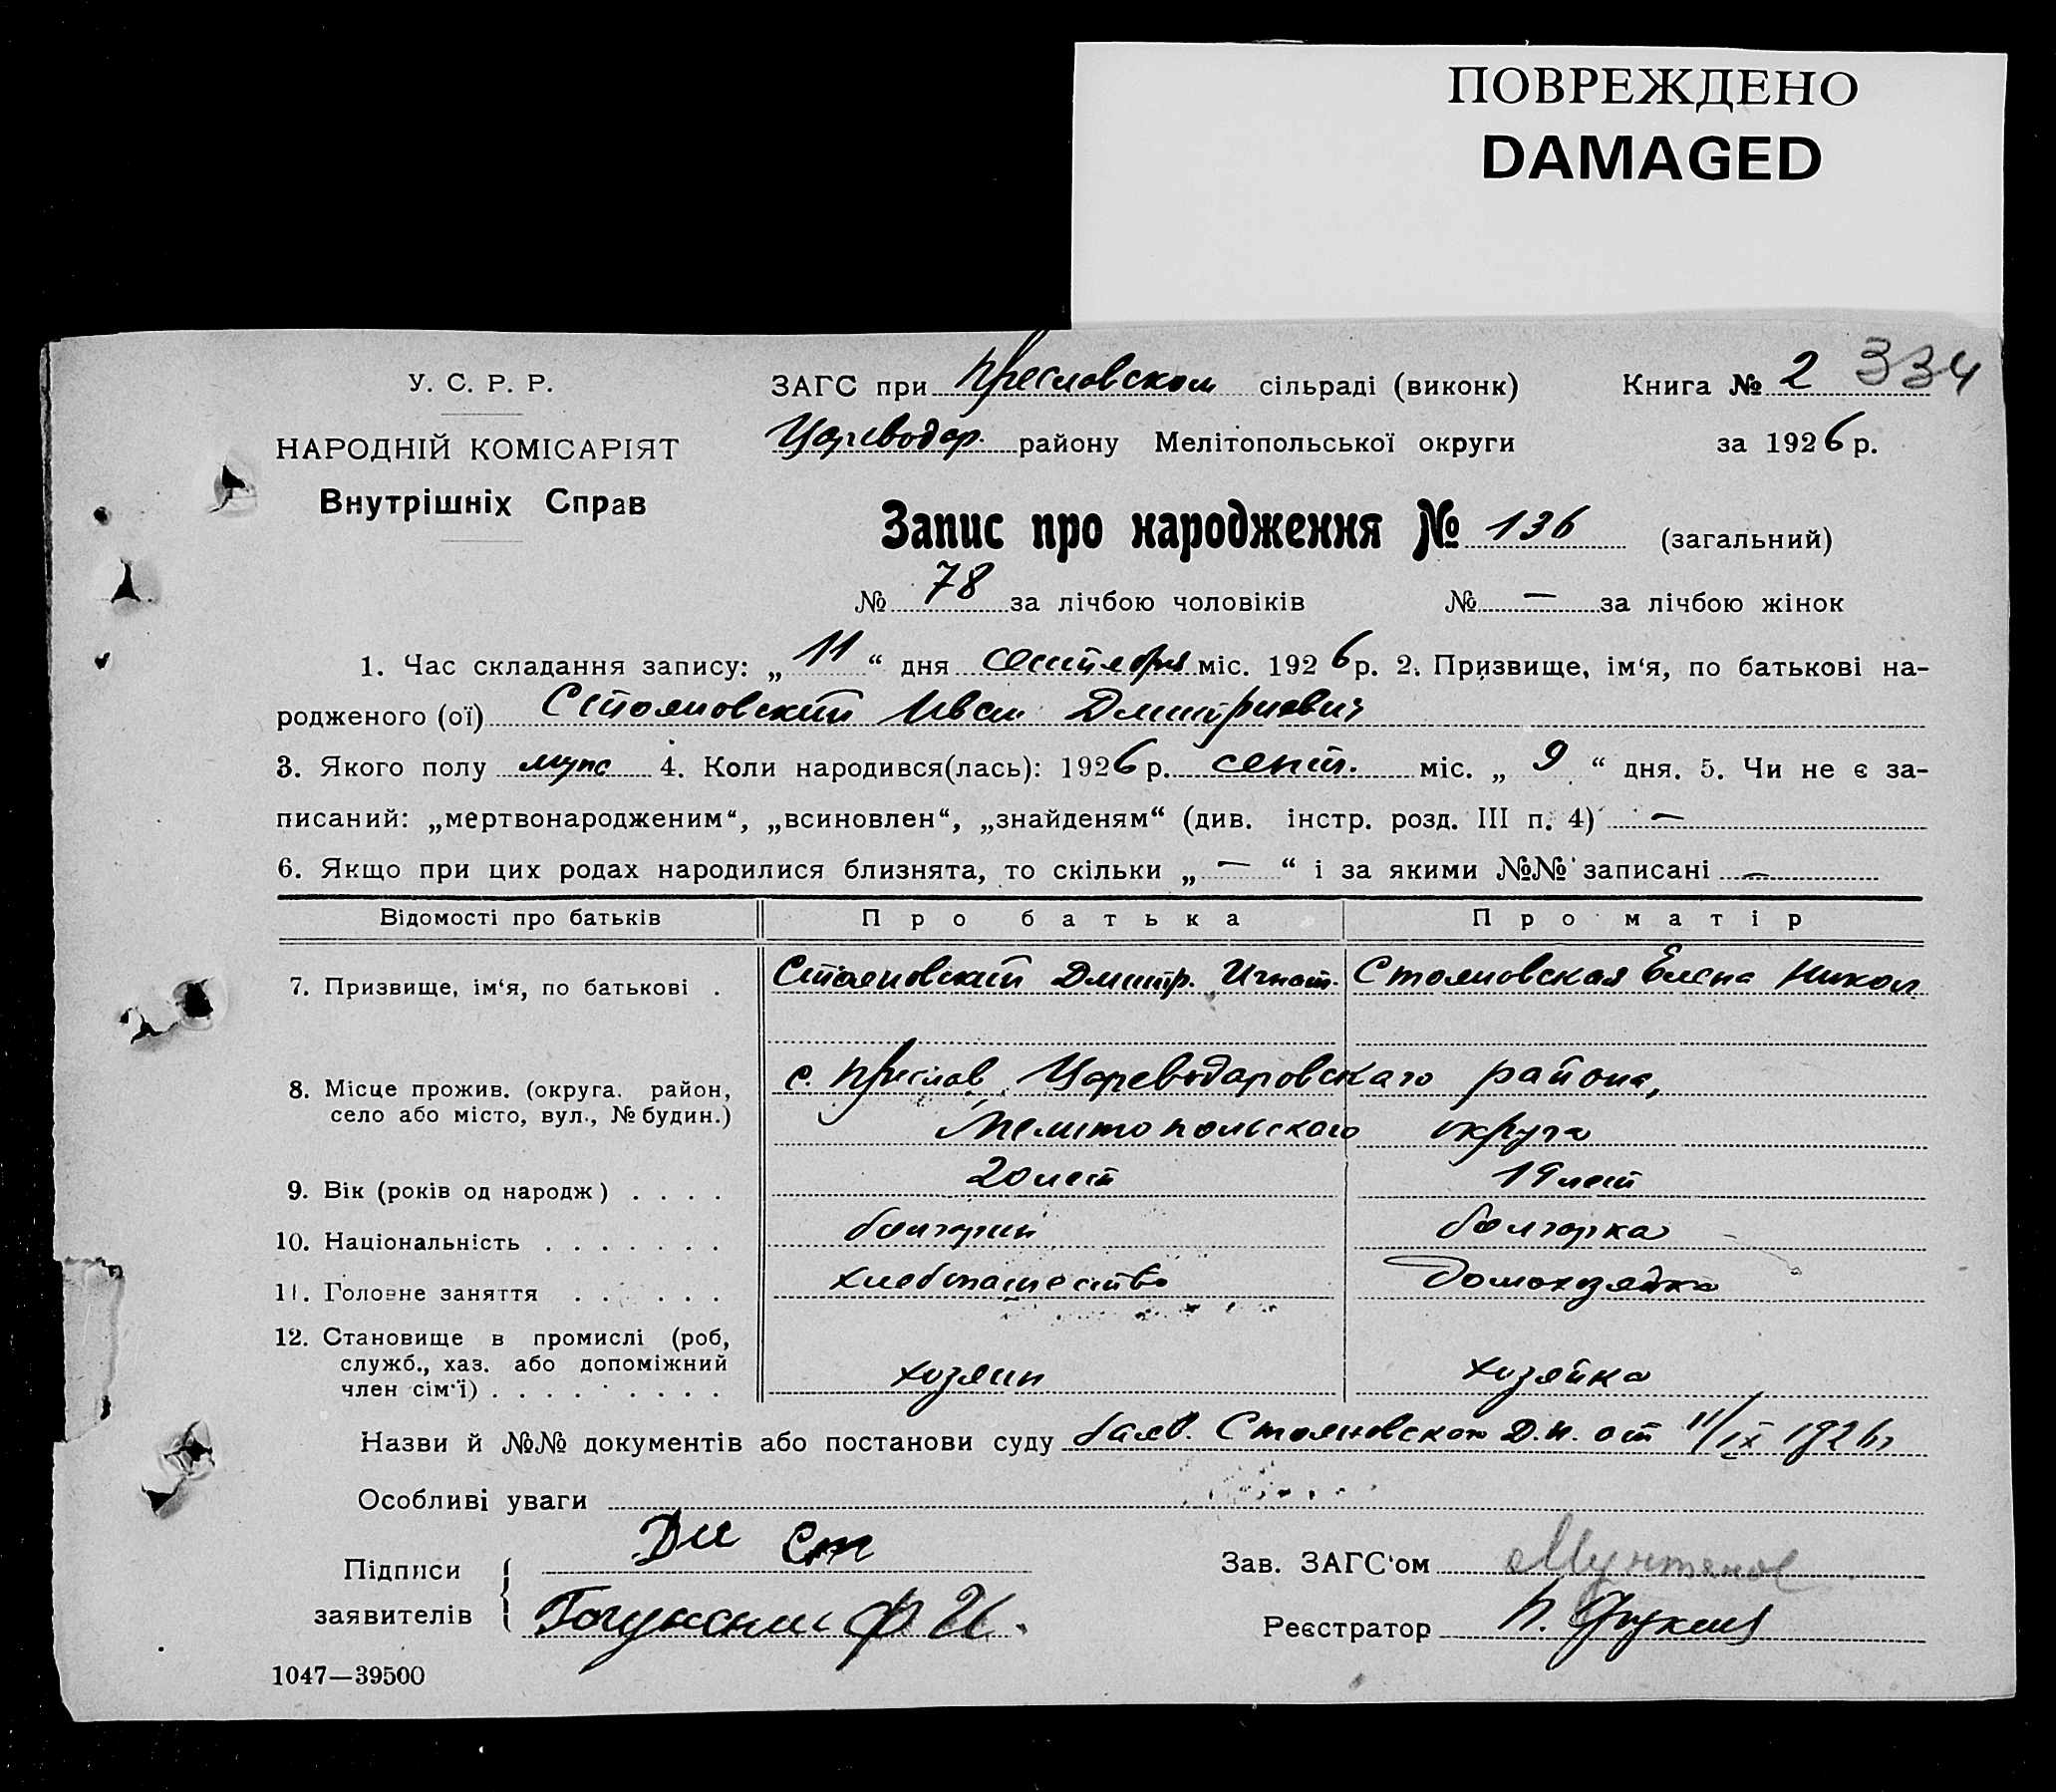 ПОВРЕЖДЕНО
DAMAGED
У. С. Р. Р.
НАРОДНІЙ КОМІСАРІЯТ
Внутрішніх Справ
ЗАГС при Преславском сільраді (виконк)
Книга № 2 334
Цареводар. району Мелітопольської округи
за 1926 р.
Запис про народження № 136 (загальний)
№ 78 за лічбою чоловіків № — за лічбою жінок
1. Час складання запису: „11“ дня сентября міс. 1926 р. 2. Призвище, ім‘я, по батькові на-
родженого (ої) Стояновский Иван Дмитриевич
3. Якого полу муж 4. Коли народився(лась): 1926 р. сент. міс. „9“ дня. 5. Чи не є за-
писаний: „мертвонародженим“, „всиновлен“, „знайденям“ (див. інстр. розд. III п. 4) —
6. Якщо при цих родах народилися близнята, то скільки „—“ і за якими №№ записані —
Відомості про батьків Про батька Про матір
7. Призвище, ім‘я, по батькові . Стояновский Дмитр. Игнат. Стояновская Елена Никол.
8. Місце прожив. (округа. район, с. Преслав, Цареводаровскаго района,
село або місто, вул., № будин.) Мелитопольского округа
9. Вік (років од народж) . . . . 20 лет 19 лет
10. Національність . . . . . . . болгарин болгарка
11. Головне заняття . . . . . . хлебопашество домохозяйка
12. Становище в промислі (роб,
служб., хаз. або допоміжний хозяин хозяйка
член сім‘ї) . . . . . . . . .
Назви й №№ документів або постанови суду Стояновского Д. И. от 11/IX 1926 г
Особливі уваги
Підписи Ди Ст
Зав. ЗАГС‘ом
заявителів Ф И.
Реєстратор П.
1047—39500